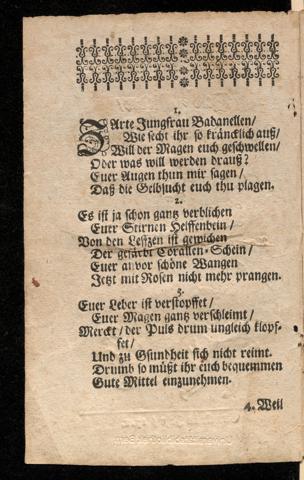 1.
ZArte Jungfrau Badanellen/
Wie secht ihr so kräncklich auß/
Will der Magen euch geschwellen/
Oder was will werden drauß?
Euer Augen thun mir sagen/
Daß die Gelbsucht euch thu plagen.
2.
Es ist ja schon gantz verblichen
Euer Stirnen Helffenbein/
Von den Leffzen ist gewichen
Der gefärbt Corallen-Schein/
Euer zuvor schöne Wangen
Jetzt mit Rosen nicht mehr prangen.
3.
Euer Leber ist verstopffet/
Euer Magen gantz verschleimt/
Merckt/ der Pulß drum ungleich klopf-
fet/
Und zu Gsundheit sich nicht reimt.
Drumb so müßt ihr euch bequemmen
Gute Mittel einzunehmen.
4. Weil